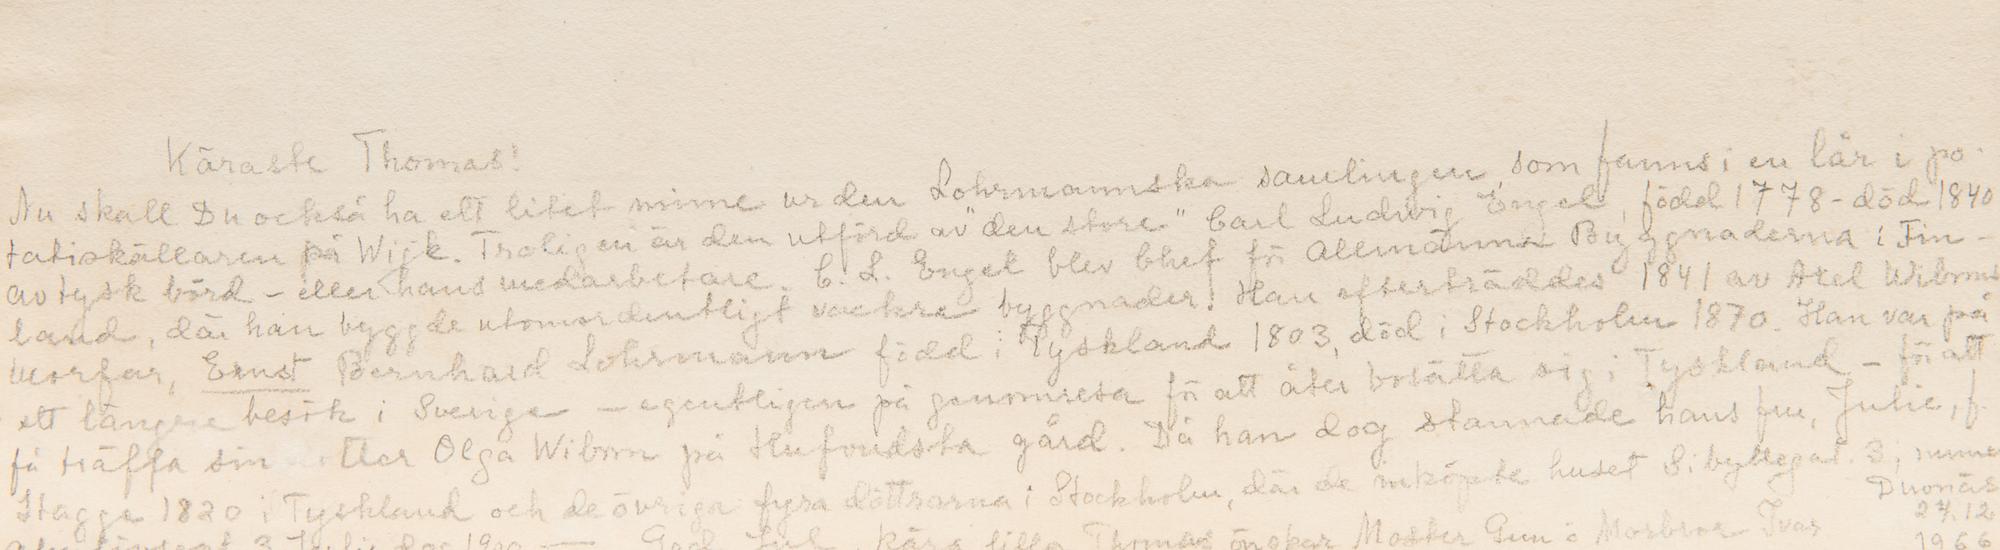 Käraste Thomas!
Nu skall Du också ha ett litet minne ur den Lohrmannska samlingen, som fanns i en lår i po-
tatiskällaren på Wijk. Troligen är den utförd av "den store" Carl Ludvig Engel, född 1778 - död 1840
av tysk börd - eller hans medarbetare. C. L. Engel blev chef för Allmänna Byggnaderna i Fin-
land, där han byggde utomordentligt vackra byggnader. Han efterträddes 1841 av Axel Wiboms
morfar, Ernst Bernhard Lohrmann född i Tyskland 1803, död i Stockholm 1870. Han var på
ett längre besök i Sverige - egentligen på genomresa för att åter bosätta sig i Tyskland - för att
få träffa sin dotter Olga Wibom på gård. Då han dog stannade hans fru, Julie, f.
Stagge 1820 i Tyskland och de övriga fyra döttrarna i Stockholm, där de inköpte huset Sibylleg. 3,
God Jul, kära lilla Thomas önskar Moster Gun o Morbror Ivar
Duvnäs
27.12
1966